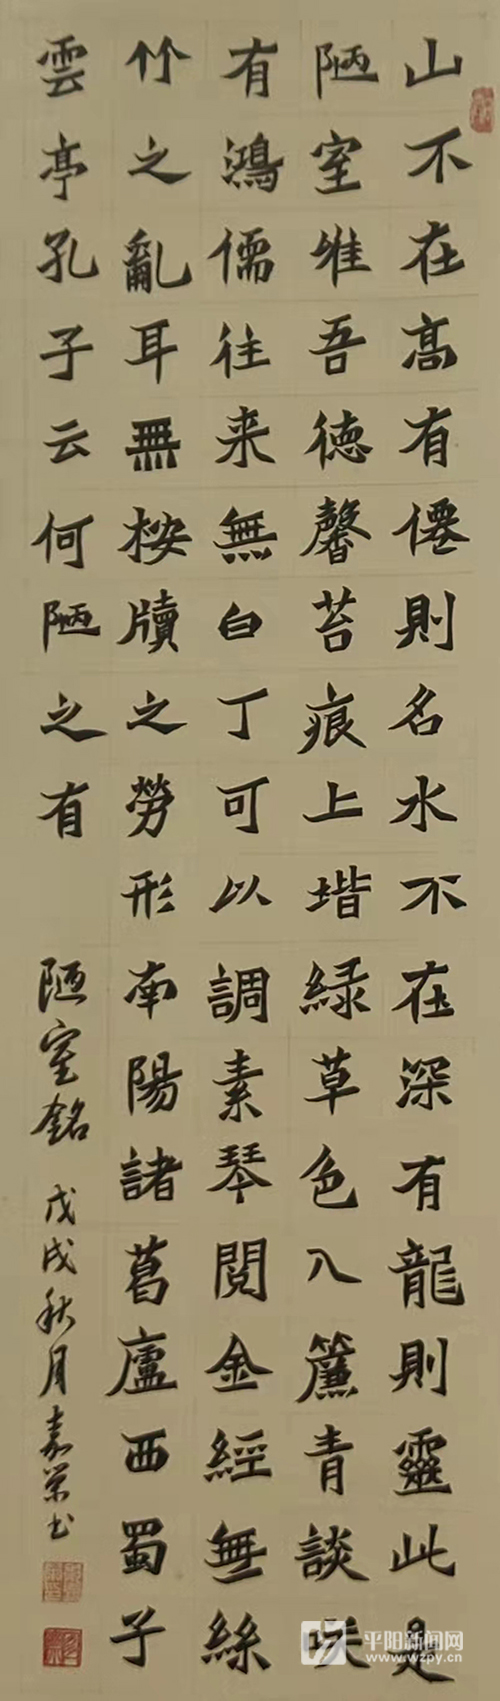 山不在高有僊則名水不在深有龍則靈此是
陋室惟吾徳馨苔痕上堦緑草色入簾青談咲
有鴻儒往来無白丁可以調素琴閱金經無絲
竹之亂耳無桉牘之勞形南陽諸葛廬西蜀子
雲亭孔子云何陋之有
陋室銘 戊戌秋月嘉荣书
平阳新闻网
www.wzpy.cn